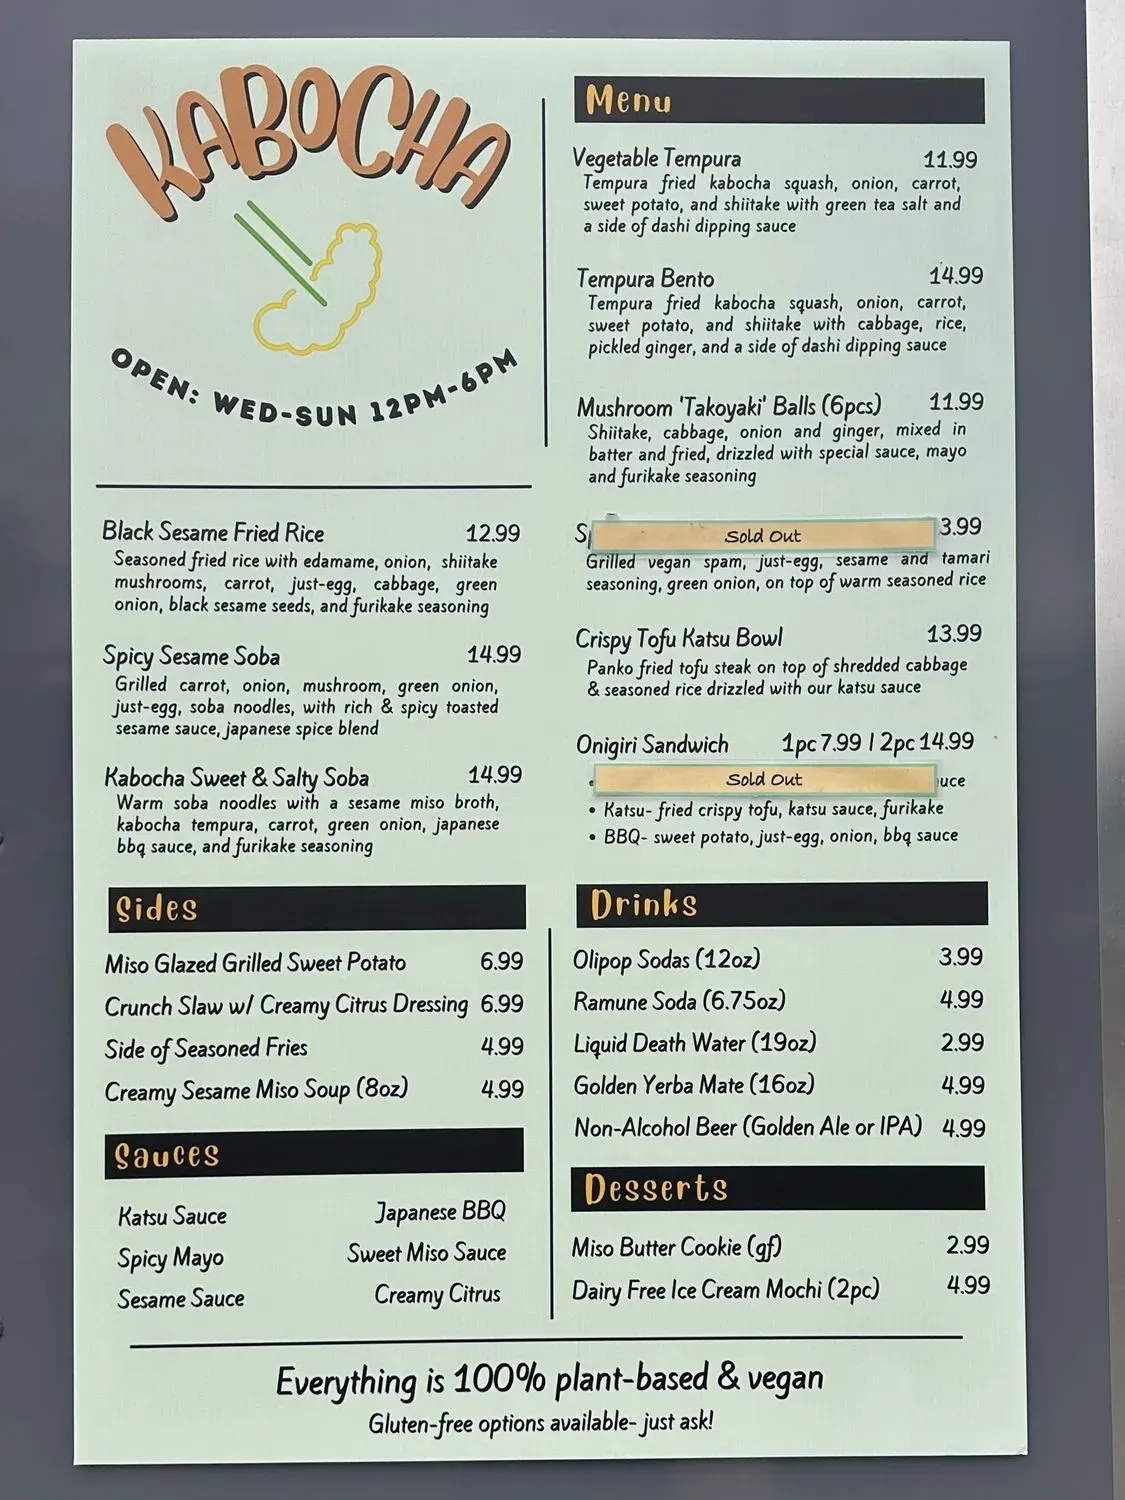 KABOCHA
OPEN: WED-SUN 12PM-6PM
Menu
Vegetable Tempura 11.99
Tempura fried kabocha squash, onion, carrot,
sweet potato, and shiitake with green tea salt and
a side of dashi dipping sauce
Tempura Bento 14.99
Tempura fried kabocha squash, onion, carrot,
sweet potato, and shiitake with cabbage, rice,
pickled ginger, and a side of dashi dipping sauce
Mushroom 'Takoyaki' Balls (6pcs) 11.99
Shiitake, cabbage, onion and ginger, mixed in
batter and fried, drizzled with special sauce, mayo
and furikake seasoning
Sold Out 3.99
Grilled vegan spam, just-egg, sesame and tamari
seasoning, green onion, on top of warm seasoned rice
Crispy Tofu Katsu Bowl 13.99
Panko fried tofu steak on top of shredded cabbage
& seasoned rice drizzled with our katsu sauce
Onigiri Sandwich 1pc 7.99 | 2pc 14.99
• Sold Out
• Katsu- fried crispy tofu, katsu sauce, furikake
• BBQ- sweet potato, just-egg, onion, bbq sauce
Black Sesame Fried Rice 12.99
Seasoned fried rice with edamame, onion, shiitake
mushrooms, carrot, just-egg, cabbage, green
onion, black sesame seeds, and furikake seasoning
Spicy Sesame Soba 14.99
Grilled carrot, onion, mushroom, green onion,
just-egg, soba noodles, with rich & spicy toasted
sesame sauce, japanese spice blend
Kabocha Sweet & Salty Soba 14.99
Warm soba noodles with a sesame miso broth,
kabocha tempura, carrot, green onion, japanese
bbq sauce, and furikake seasoning
Sides
Miso Glazed Grilled Sweet Potato 6.99
Crunch Slaw w/ Creamy Citrus Dressing 6.99
Side of Seasoned Fries 4.99
Creamy Sesame Miso Soup (8oz) 4.99
Sauces
Katsu Sauce Japanese BBQ
Spicy Mayo Sweet Miso Sauce
Sesame Sauce Creamy Citrus
Drinks
Olipop Sodas (12oz) 3.99
Ramune Soda (6.75oz) 4.99
Liquid Death Water (19oz) 2.99
Golden Yerba Mate (16oz) 4.99
Non-Alcohol Beer (Golden Ale or IPA) 4.99
Desserts
Miso Butter Cookie (gf) 2.99
Dairy Free Ice Cream Mochi (2pc) 4.99
Everything is 100% plant-based & vegan
Gluten-free options available- just ask!